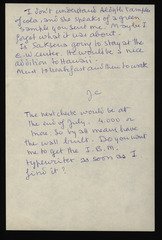 I don't understand Alleyte's samples
of cola, and she speaks of a green
sample you sent me. Maybe I
forgot what it was about.
Is Saksena going to stay at the
E.W. Center. He would be a nice
addition to Hawaii.
Must to breakfast and then to work
J.C
The next cheque would be at
the end of July. 4,000 or
more. So by all means have
the wall built. Do you want
me to get the I.B.M.
typewriter as soon as I
find it?